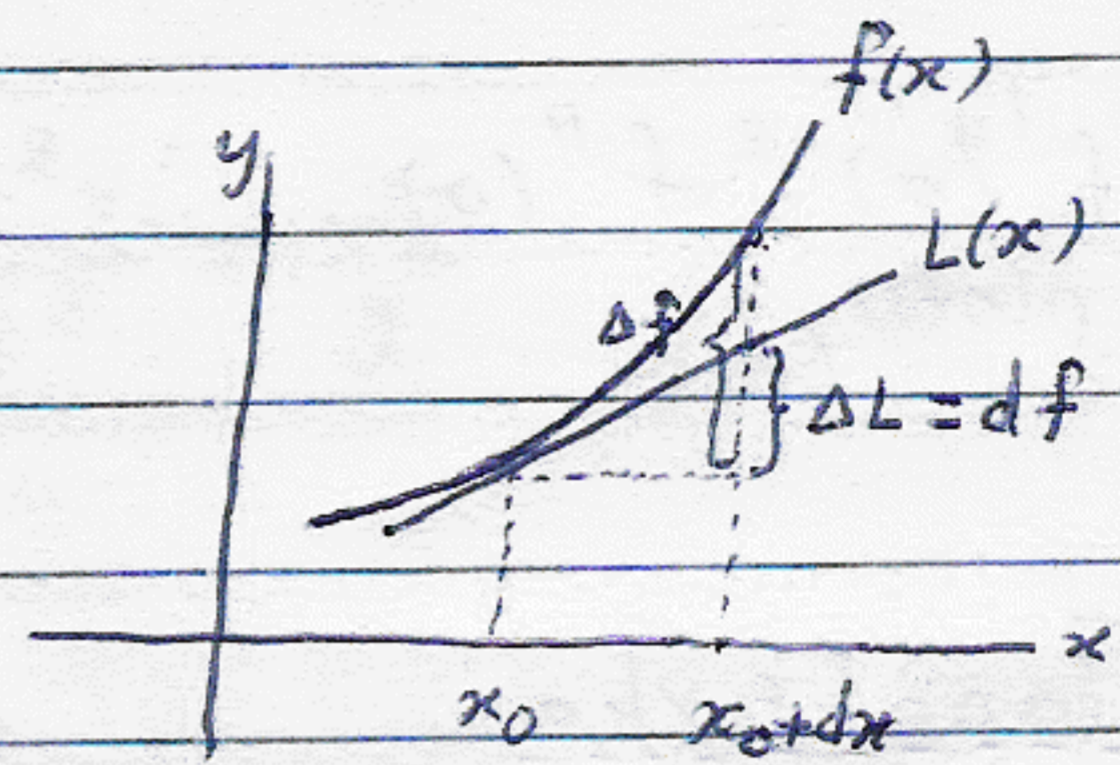 f(x)
y
L(x)
Δf
ΔL = df
x
x₀
x₀+dx